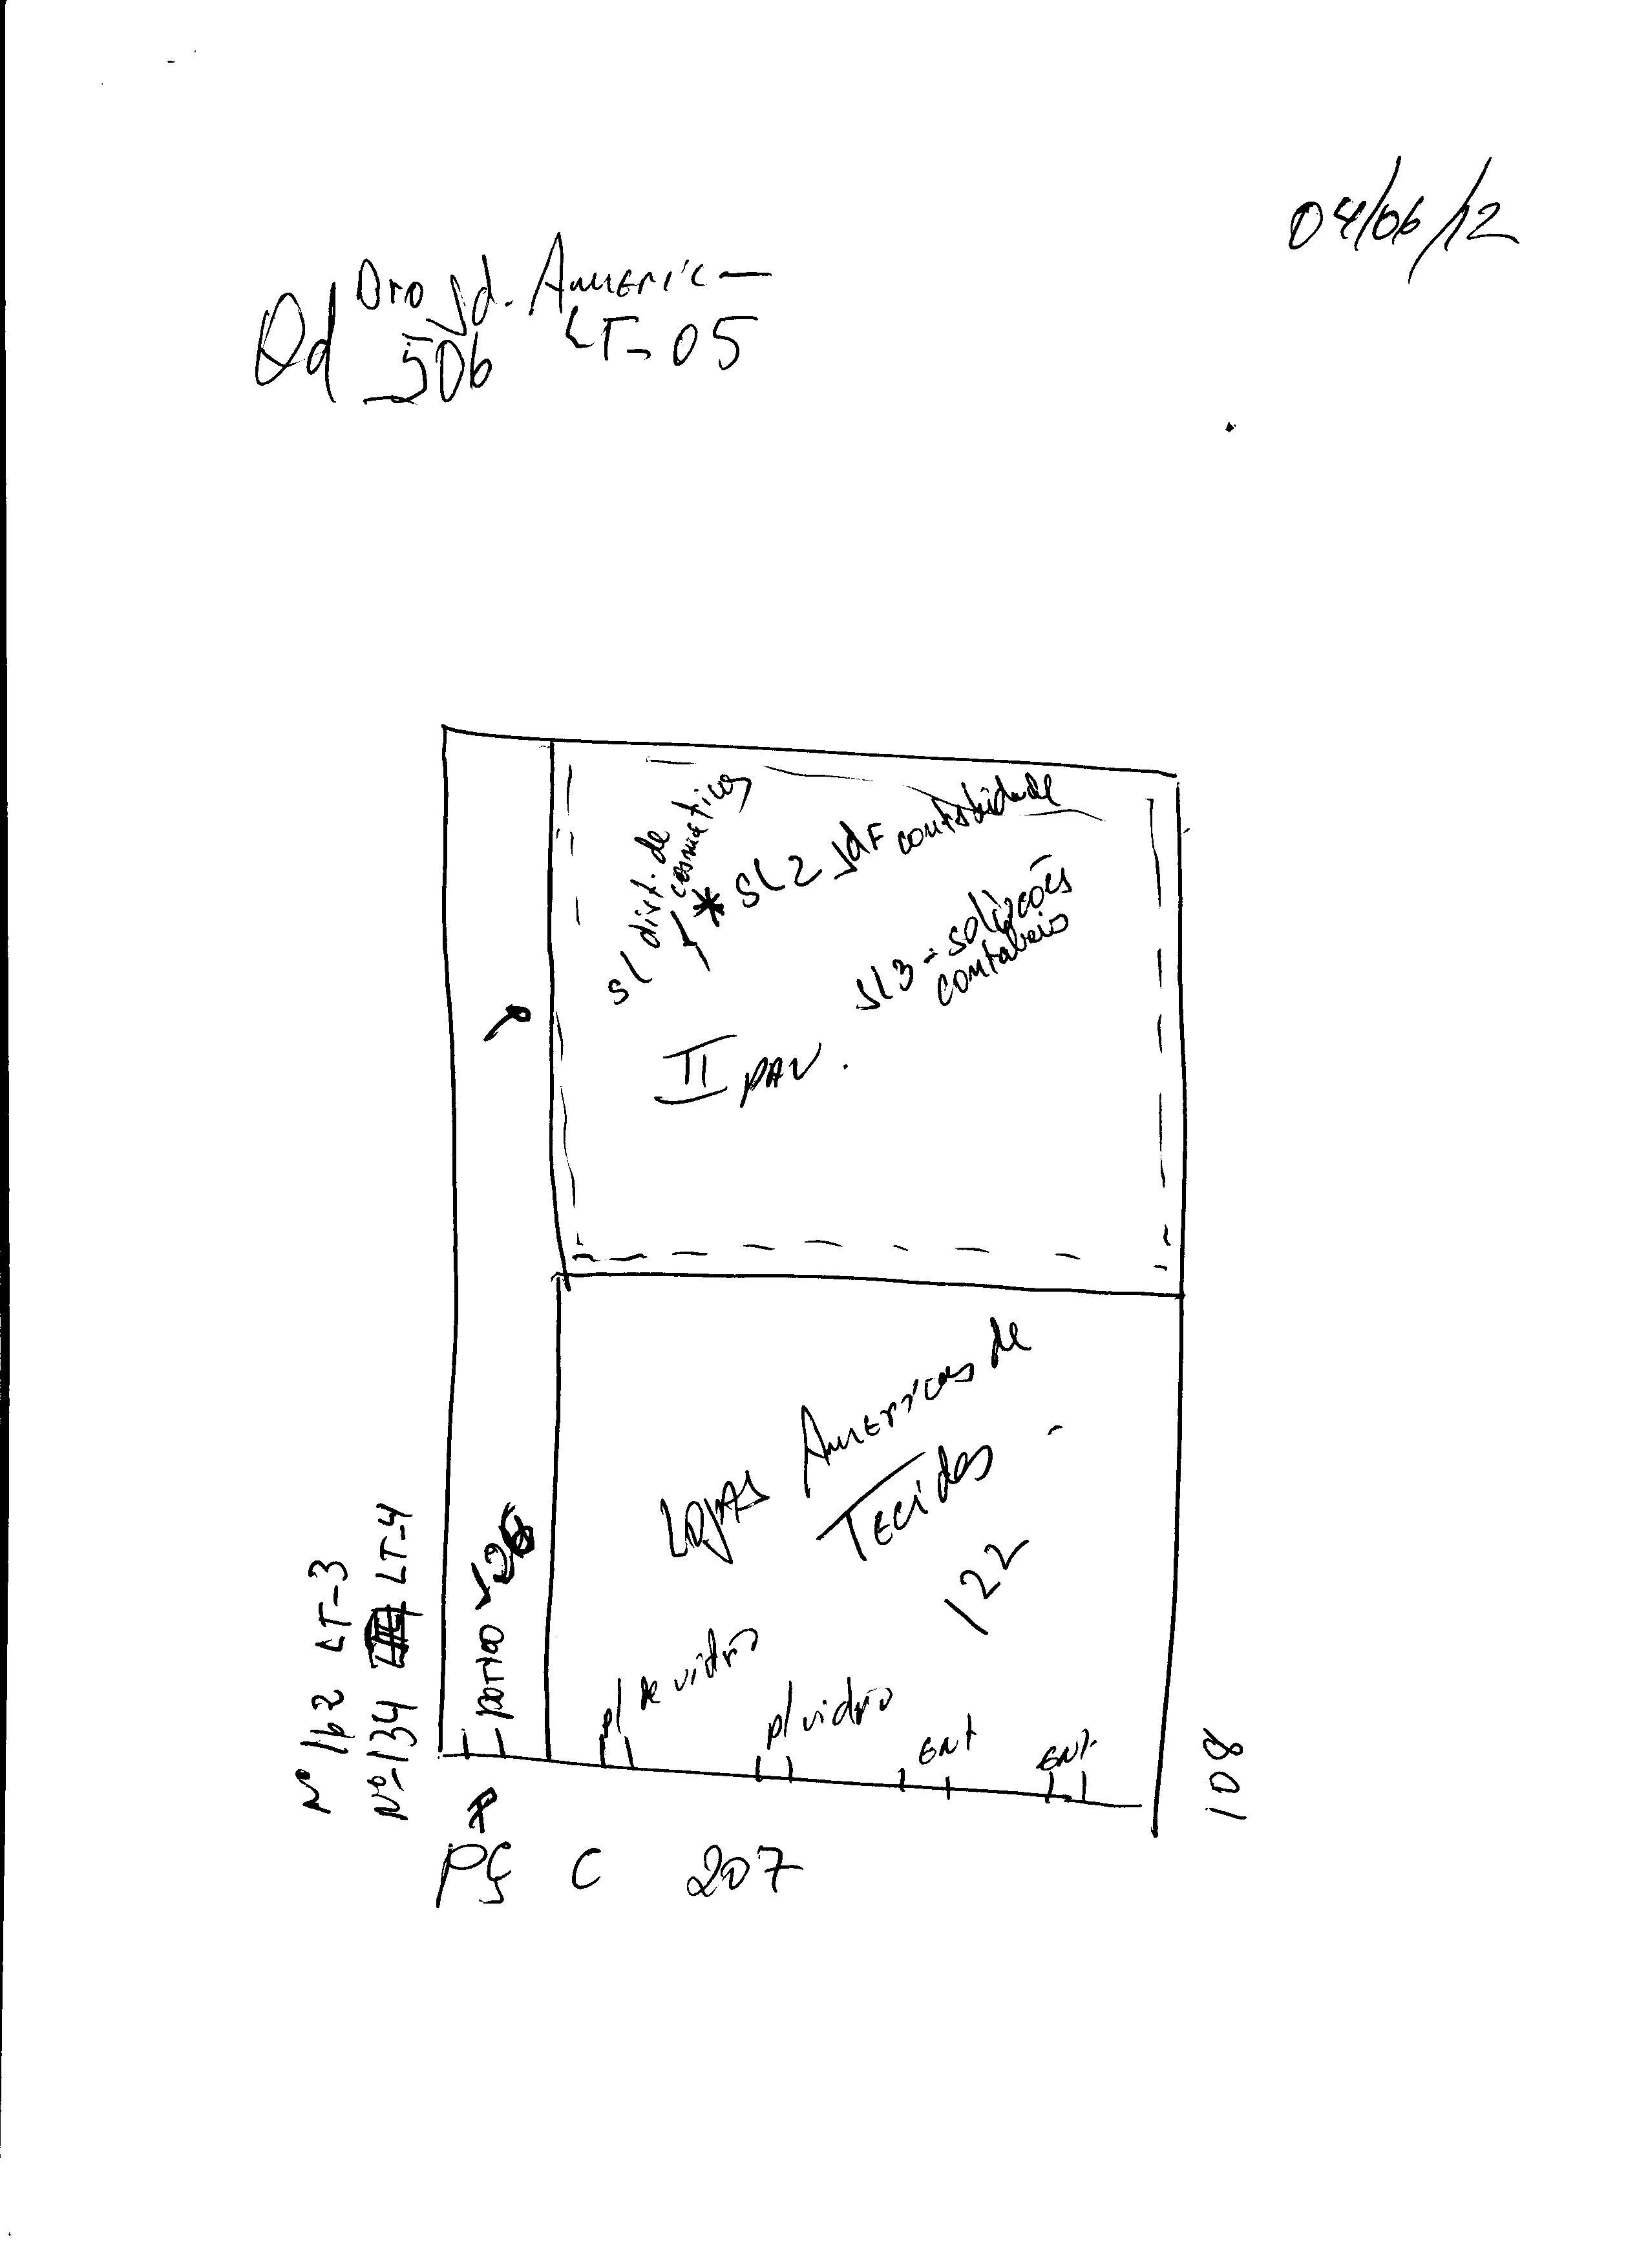 04/06/12
Dro Jd. Améric
Qd 506 LT-05
sl 1 dist. de
cosmáticos
* sl 2 JdF contabilidade
sl 3 - soluções
contabeis
II PAV.
Lojas Américas de
Tecidos
122
portão 126
p/ de vidro
p/ vidro
ENT
ENT.
Nº 162 LT-3
Nº 134 LT-4
108
PÇ C 207